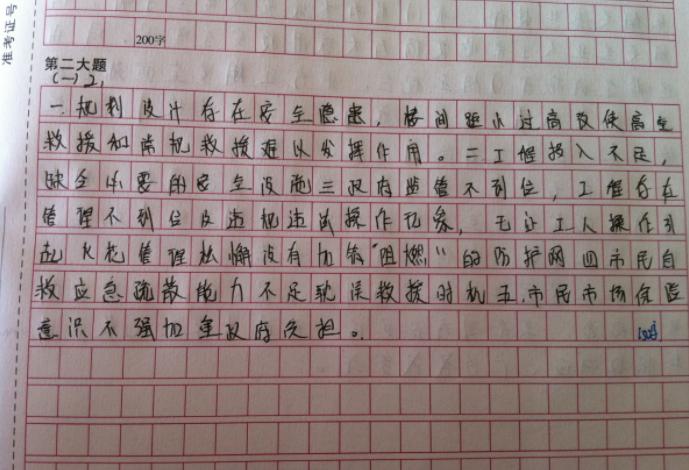 准考证号
200字
第二大题
(一) 2.
一.规划设计存在安全隐患,楼间距小过高致使高空
救援和常规救援难以发挥作用。二工程投入不足,
缺乏必要的安全设施三政府监管不到位,工程存在
管理不到位及违规违法操作现象,无证工人操作引
起火花管理松懈没有加装"阻燃"的防护网四市民自
救应急疏散能力不足耽误救援时机五.市民市场保险
意识不强加重政府负担。